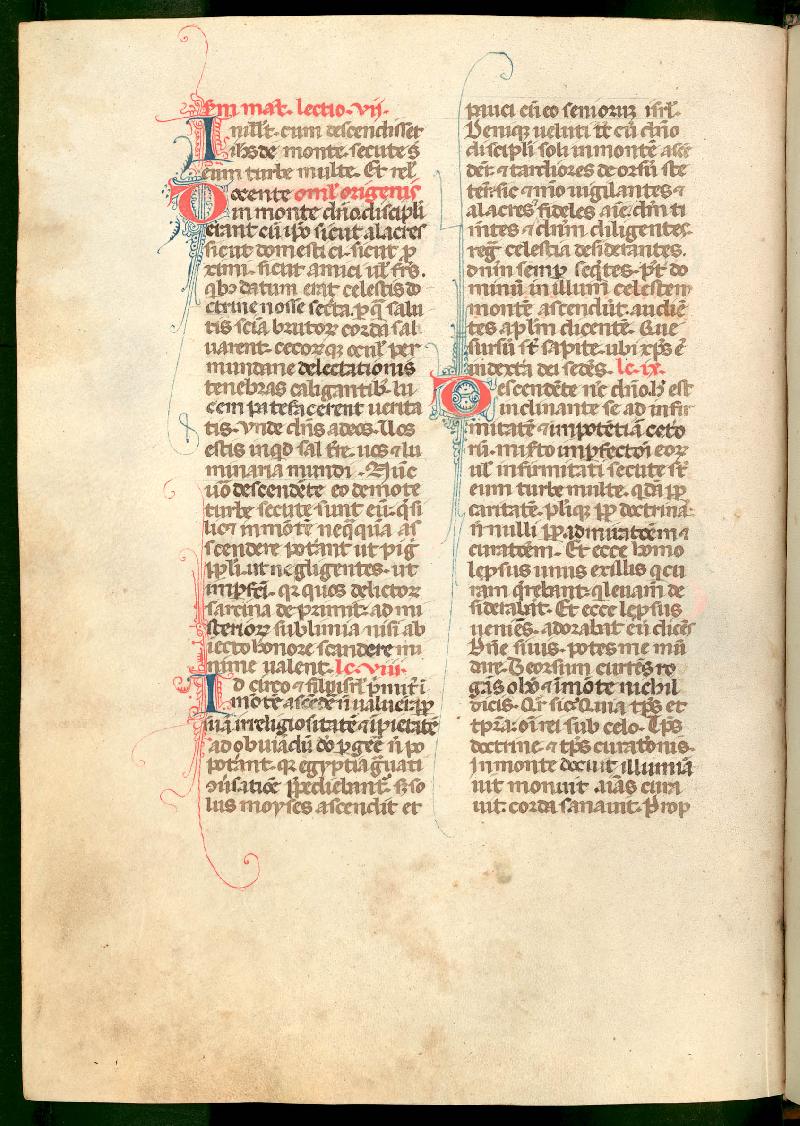 scdm mat. lectio. vii.
In illt. cum descendisset
ihs de monte. secute st̄
eum turbe multe. Et rel
Docente omel origenis
in monte dn̄o discipli
erant cū ip̄o sicut alacres
sicut domestici. sicut p
ximi. sicut amici ul' frs̄.
qb' datum erat celestis do
ctrine nosse secta. p q̄ salu
tis sciā brutoꝝ corda sal
uarent. cecoꝝ q; ocul' per
mundane delectationis
tenebras caligantib; lu
cem patefacerent uerita
tis. Vnde dn̄s ad eos. Uos
estis inqd sal tr̄e. uos & lu
minaria mundi. Nūc
uō descendēte eo de mōte
turbe secute sunt eū. q̄ si
lic& in mōte neq̄qua as
scendere potant ut pig
ppl'i. ut negligentes. ut
impfcī. qr quos delictoꝝ
sarcina deprimit. ad mi
sterioꝝ sublimia nisi ab
iecto honore scandere mi
nime ualent. lc. viii.
Idcirco & filii isrl' pmit' ī
mōtē ascedē n̄ ualuer. pp
suā irreligiositatē & īpietatē
ad obuiādū do pgēe n̄ po
potant. qr egyptia q̄uati
ɔuisatiōe īpediebant. s; so
lus moyses ascendit et
pauci cū eo seniorum isrl'.
Deniq; ueluti tc̄ cū dn̄o
discipli soli in montē asce
der. & tardiores deorsū ste
ter. sic & m̄o uigilantes &
alacres fideles aīe. dn̄m ti
mites & dn̄um diligentes
reg celestia desiderantes.
dn̄m semp seq̄tes. pt̄ do
minū in illum celestem
montē ascendūt. audiē
tes aplm dicentē. Que
sursū st̄ sapite. ubi xp̄s ē
in dextā dei sedēs. lc. ix.
Descendēte n̄c dn̄o. h est
inclinante se ad infir
mitatē & impotētiā ceto
rū. misto impfectōi eoꝝ
ul' infirmitati secute st̄
eum turbe multe. qdā pp
caritatē. pliq; pp doctrinā.
n̄ nulli pp admiratōem &
curatōem. Et ecce homo
leprsus unus ex illis q cu
ram q̄rebant. q leuam de
siderabat. Et ecce leprsus
ueniēs. adorabat eū dicēs
Dn̄e si uis. potes me mū
dare. Deorsum currēs ro
gas. olō & ī mōte nichil
dicis. Qr sic. Quia tp̄s et
tp̄ra. oī rei sub celo. Tp̄s
doctrine. & tp̄s curatōnis.
In monte docuit illumiā
uit monuit. aīas cura
uit. corda sanauit. Prop